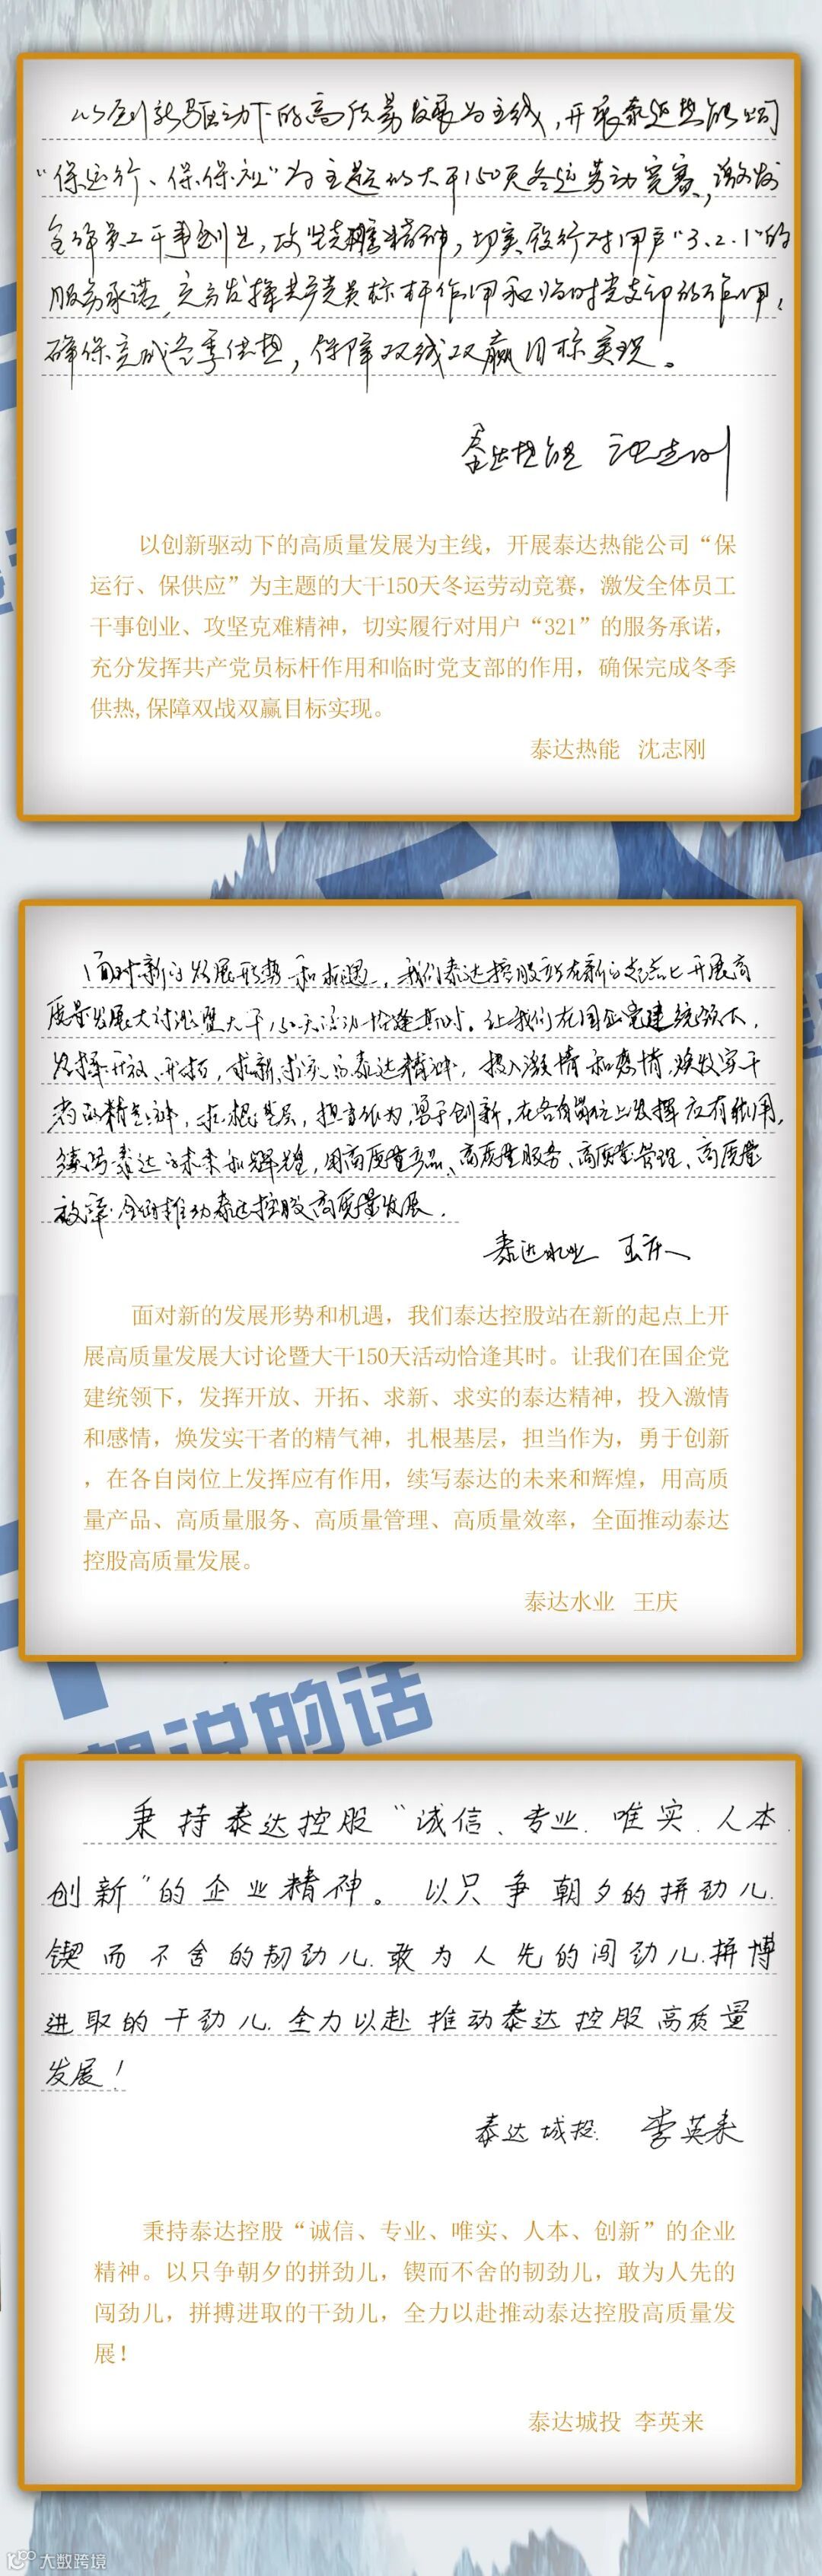 以创新驱动下的高质量发展为主线，开展泰达热能公司
“保运行、保供应”为主题的大干150天冬运劳动竞赛，激发
全体员工干事创业，攻坚克难精神，切实履行对用户“3.2.1”的
服务承诺，充分发挥共产党员标杆作用和临时党支部的作用，
确保完成冬季供热，保障双战双赢目标实现。
泰达热能 沈志刚
以创新驱动下的高质量发展为主线，开展泰达热能公司“保
运行、保供应”为主题的大干150天冬运劳动竞赛，激发全体员工
干事创业、攻坚克难精神，切实履行对用户“321”的服务承诺，
充分发挥共产党员标杆作用和临时党支部的作用，确保完成冬季
供热,保障双战双赢目标实现。
泰达热能 沈志刚
面对新的发展形势和机遇，我们泰达控股站在新的起点上开展高
质量发展大讨论暨大干150天活动恰逢其时。让我们在国企党建统领下，
发挥开放、开拓，求新、求实的泰达精神，投入激情和感情，焕发实干
者的精气神，扎根基层，担当作为，勇于创新，在各自岗位上发挥应有作用，
续写泰达的未来和辉煌，用高质量产品、高质量服务、高质量管理、高质量
效率，全面推动泰达控股高质量发展。
泰达水业 王庆
面对新的发展形势和机遇，我们泰达控股站在新的起点上开
展高质量发展大讨论暨大干150天活动恰逢其时。让我们在国企党
建统领下，发挥开放、开拓、求新、求实的泰达精神，投入激情
和感情，焕发实干者的精气神，扎根基层，担当作为，勇于创新
，在各自岗位上发挥应有作用，续写泰达的未来和辉煌，用高质
量产品、高质量服务、高质量管理、高质量效率，全面推动泰达
控股高质量发展。
泰达水业 王庆
想说的话
秉持泰达控股“诚信、专业、唯实、人本、
创新”的企业精神。以只争朝夕的拼劲儿、
锲而不舍的韧劲儿、敢为人先的闯劲儿、拼博
进取的干劲儿、全力以赴推动泰达控股高质量
发展！
泰达城投： 李英来
秉持泰达控股“诚信、专业、唯实、人本、创新”的企业
精神。以只争朝夕的拼劲儿，锲而不舍的韧劲儿，敢为人先的
闯劲儿，拼搏进取的干劲儿，全力以赴推动泰达控股高质量发
展！
泰达城投 李英来
大数跨境